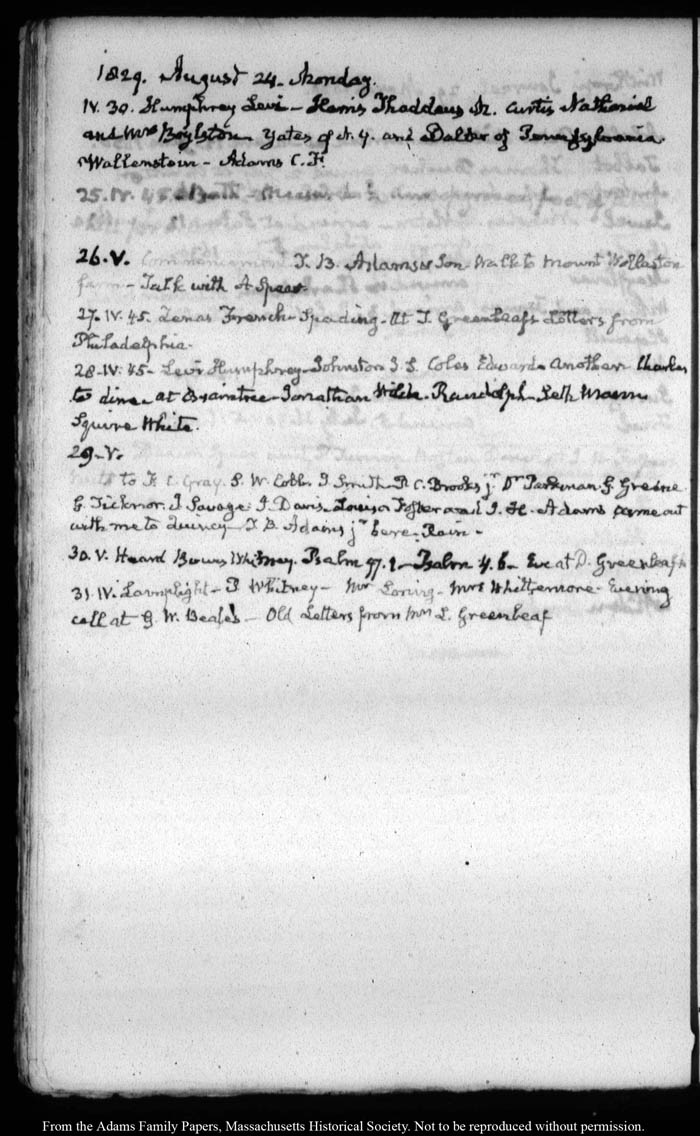 1829. August 24. Monday.
IV. 30. Humphrey Levi – Harris Thaddeus M. Curtis Nathaniel
and Mrs Boylston. Yates of N. Y. and of Pennsylvania
Wallenstein – Adams C. F.
25. IV. 45 – Bath –
26. V. T. B. Adams's Son Walk to Mount Wollaston
farm – Talk with A Spear.
27. IV. 45. Lenas French – Spading – At T. Greenleaf's Letters from
Philadelphia.
28. IV. 45 – Levi Humphrey – Johnston J. S. Coles Edward another Charles
to dine at Braintree – Jonathan Wilde. Randolph – Seth Mann
Squire White.
29. V. Deacon Spear
to F. C. Gray. S. W. Cobb. J. Smith – P. C. Brooks jr. Dr Parkman. G. Greene
G. Ticknor. J Savage. J. Davis. Louisa Foster and I. H. Adams came out
with me to Quincy – T. B. Adams jr here. Rain –
30. V. Heard Whitney. Psalm 97. 1 – Psalm 4. 6 – Eve at D. Greenleaf's
31. IV. Lamplight – P Whitney – Mr Loring – Mrs Whittemore – Evening
call at G. W. Beale's – Old Letters from Mrs L. Greenleaf
From the Adams Family Papers, Massachusetts Historical Society. Not to be reproduced without permission.